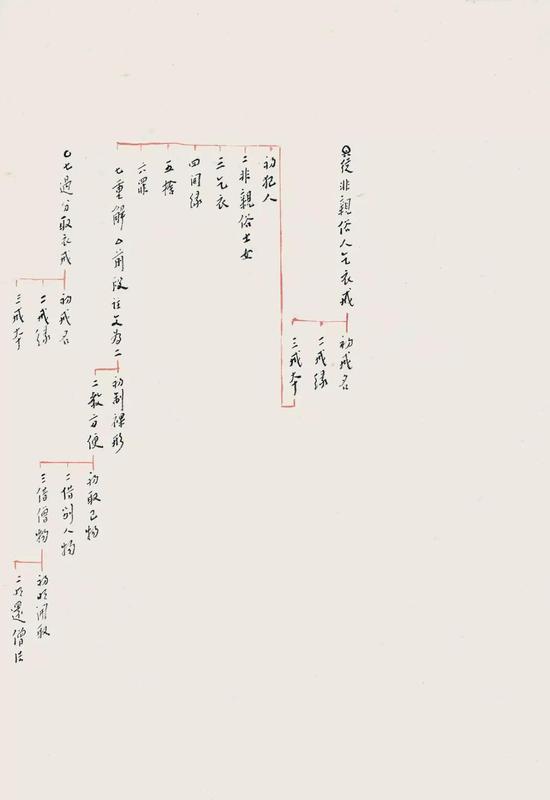 從非親俗人乞衣戒
初戒名
二戒緣
三戒本
初犯人
二非親俗士女
三乞衣
四開緣
五捨
六罪
七重解△前段註文為二
初制裸形
二教方便
初取己物
二借別人物
三借僧物
初明開取
二明還僧法
○七過分取衣戒
初戒名
二戒緣
三戒本